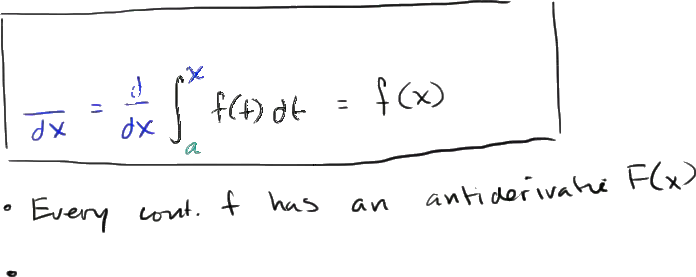 /dx = d/dx ∫_a^x f(t) dt = f(x)
• Every cont. f has an antiderivative F(x)
•